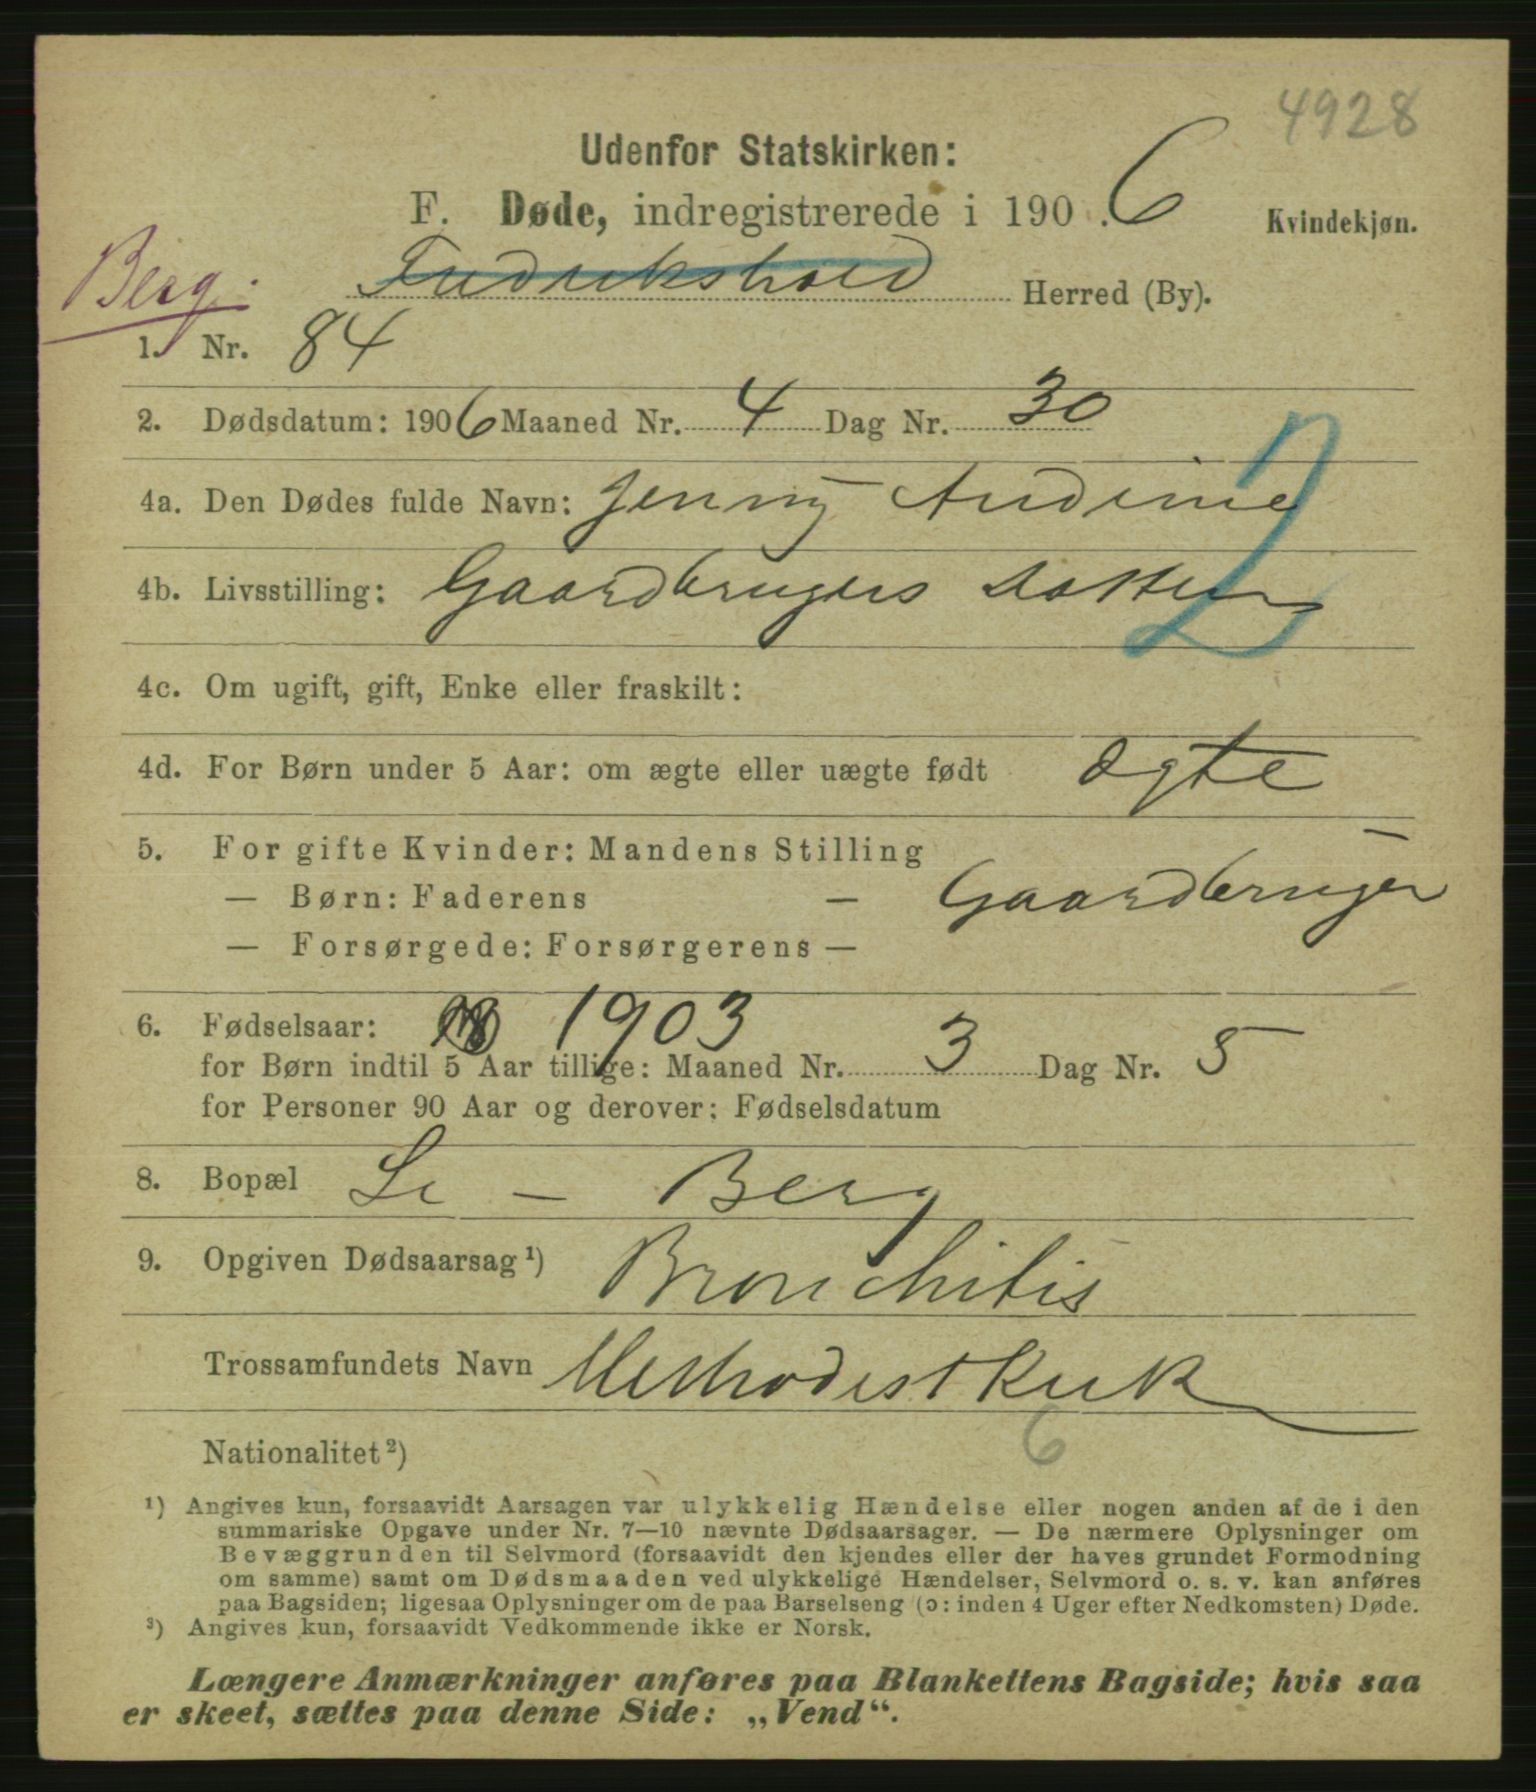 4928
Udenfor Statskirken:
F. Døde, indregistrerede i 190 6 Kvindekjøn.
Berg. Fredrikshald Herred (By).
1. Nr. 84
2. Dødsdatum: 1906 Maaned Nr. 4 Dag Nr. 30
4a. Den Dødes fulde Navn: Jenny Andine
4b. Livsstilling: Gaardbrugers Datter
2
4c. Om ugift, gift, Enke eller fraskilt:
4d. For Børn under 5 Aar: om ægte eller uægte født ægte
5. For gifte Kvinder: Mandens Stilling
— Børn: Faderens — Gaardbruger
— Forsørgede: Forsørgerens —
6. Fødselsaar: 1903
for Børn indtil 5 Aar tillige: Maaned Nr. 3 Dag Nr. 5
for Personer 90 Aar og derover: Fødselsdatum
8. Bopæl Le — Berg
9. Opgiven Dødsaarsag ¹) Bronchitis
Trossamfundets Navn Methodistkirk
6
Nationalitet ²)
¹) Angives kun, forsaavidt Aarsagen var ulykkelig Hændelse eller nogen anden af de i den
summariske Opgave under Nr. 7—10 nævnte Dødsaarsager. — De nærmere Oplysninger om
Bevæggrunden til Selvmord (forsaavidt den kjendes eller der haves grundet Formodning
om samme) samt om Dødsmaaden ved ulykkelige Hændelser, Selvmord o. s. v. kan anføres
paa Bagsiden; ligesaa Oplysninger om de paa Barselseng (ɔ: inden 4 Uger efter Nedkomsten) Døde.
³) Angives kun, forsaavidt Vedkommende ikke er Norsk.
Længere Anmærkninger anføres paa Blankettens Bagside; hvis saa
er skeet, sættes paa denne Side: „Vend“.